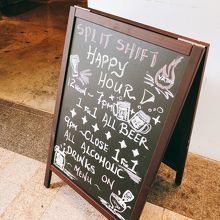 SPLIT SHIFT
HAPPY
HOUR
12NN - 7PM
1+1 ALL BEER
9PM - CLOSE 1+1
ALL ALCOHOLIC
DRINKS ON
MENU